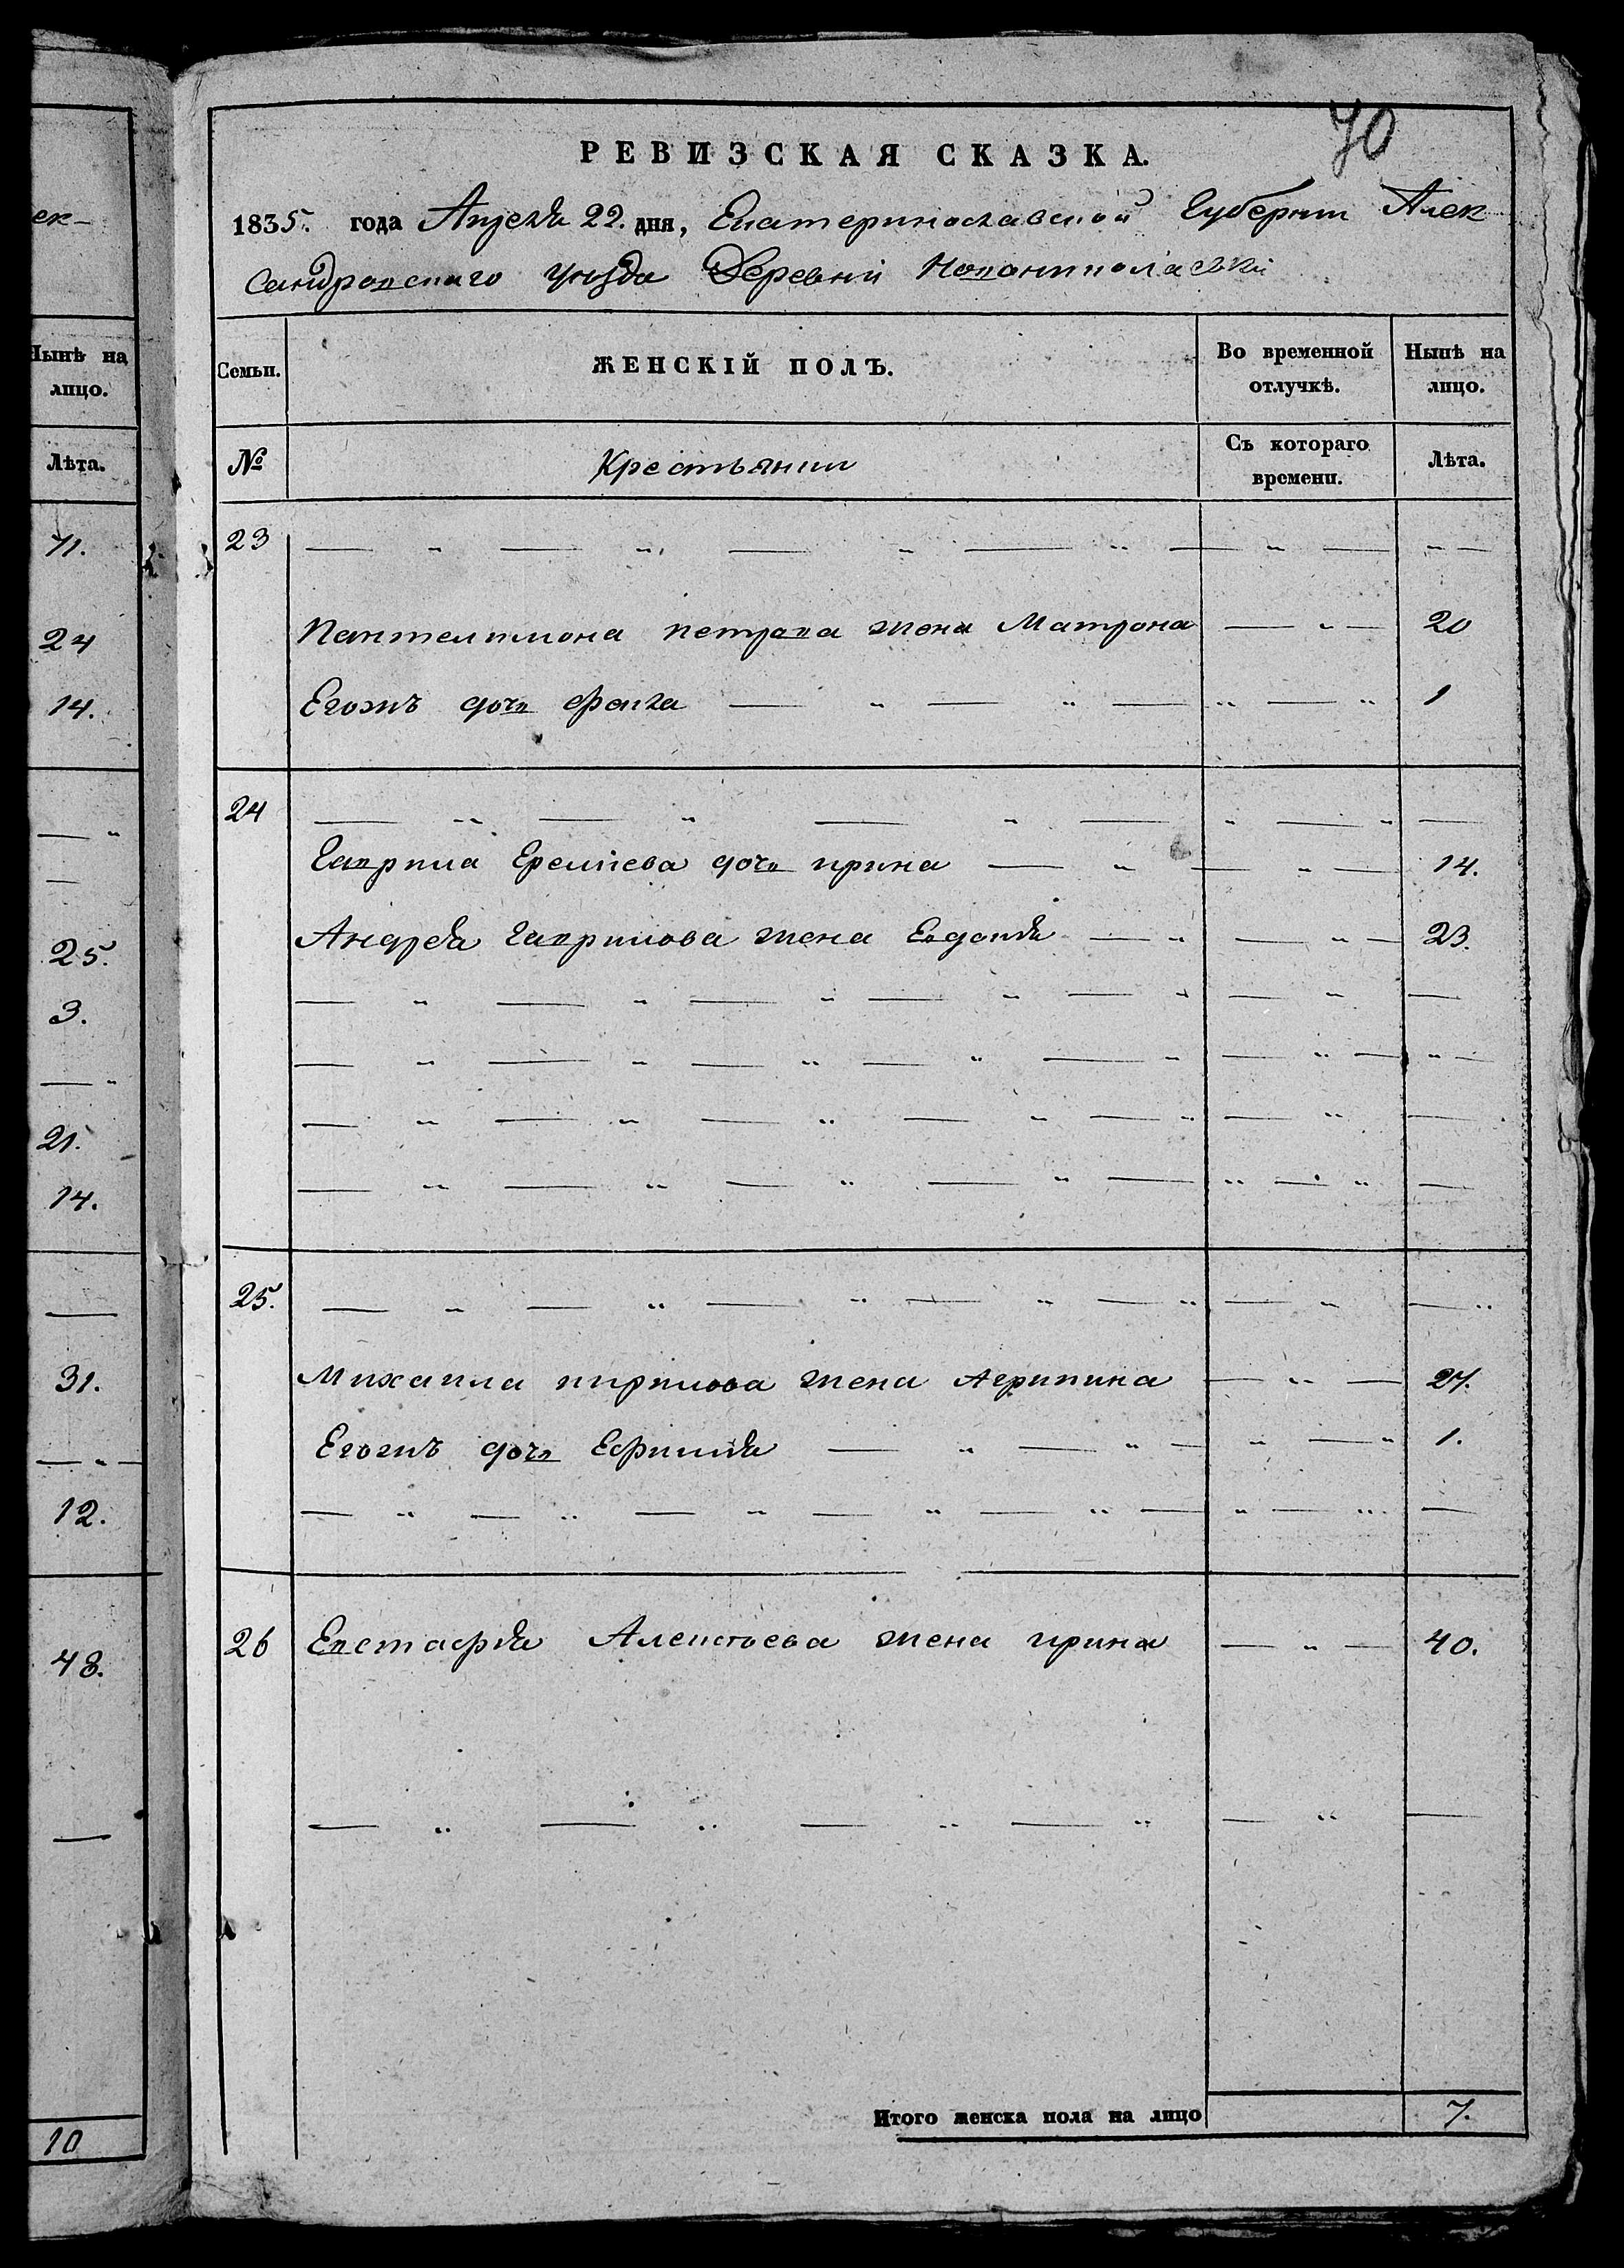 ек-
Нынѣ на
лицо.
Лѣта.
71.
24
14.
25.
3.
21.
14.
31.
12.
48.
10
70
РЕВИЗСКАЯ СКАЗКА.
1835. года Апреля 22. дня, Екатеринославской Губернии Алек
сандровскаго уезда Деревни
Семьи. ЖЕНСКІЙ ПОЛЪ. Во временной отлучкѣ. Нынѣ на лицо.
№ Крестьянин Съ котораго времени. Лѣта.
23
Пантелимона петрова жена Матрона 20
Егожъ дочь 1
24
Гаврила Еремiева дочь ирина 14.
Андрея гаврилова жена Евдокия 23.
25.
Михаила кирилова жена Агрипина 27.
Егожъ дочь Ефимия 1.
26 Евстафия Алексъева жена ирина 40.
Итого женска пола на лицо 7.